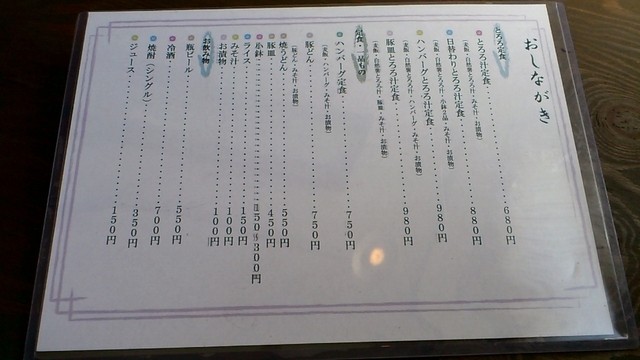 おしながき
とろろ定食
とろろ汁定食 680円
(麦飯・自然薯とろろ汁・みそ汁・お漬物)
日替わりとろろ汁定食 880円
(麦飯・自然薯とろろ汁・小鉢2品・みそ汁・お漬物)
ハンバーグとろろ汁定食 980円
(麦飯・自然薯とろろ汁・ハンバーグ・みそ汁・お漬物)
豚皿とろろ汁定食 980円
(麦飯・自然薯とろろ汁・豚皿・みそ汁・お漬物)
定食・一品もの
ハンバーグ定食 750円
(麦飯・ハンバーグ・みそ汁・お漬物)
豚どん 750円
(豚どん・みそ汁・お漬物)
焼うどん 550円
豚皿 450円
小鉢 150円〜300円
ライス 150円
みそ汁 100円
お漬物 100円
お飲み物
瓶ビール 550円
冷酒 700円
焼酎(シングル) 350円
ジュース 150円